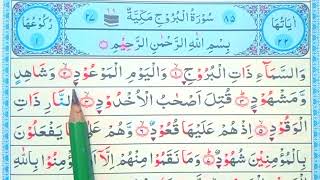 اٰيَاتُهَا ٢٢
٨٥ سُوْرَةُ الْبُرُوْجِ مَكِّيَّةٌ ٢٧
رُكُوْعُهَا ١
بِسْمِ اللّٰهِ الرَّحْمٰنِ الرَّحِيْمِ
وَالسَّمَآءِ ذَاتِ الْبُرُوْجِ ۙ﴿١﴾ وَالْيَوْمِ الْمَوْعُوْدِ ۙ﴿٢﴾ وَشَاهِدٍ
وَّمَشْهُوْدٍ ؕ﴿٣﴾ قُتِلَ اَصْحٰبُ الْاُخْدُوْدِ ۙ﴿٤﴾ النَّارِ ذَاتِ
الْوَقُوْدِ ۙ﴿٥﴾ اِذْ هُمْ عَلَيْهَا قُعُوْدٌ ۙ﴿٦﴾ وَّهُمْ عَلٰى مَا يَفْعَلُوْنَ
بِالْمُؤْمِنِيْنَ شُهُوْدٌ ؕ﴿٧﴾ وَمَا نَقَمُوْا مِنْهُمْ اِلَّاۤ اَنْ يُّؤْمِنُوْا بِاللّٰهِ